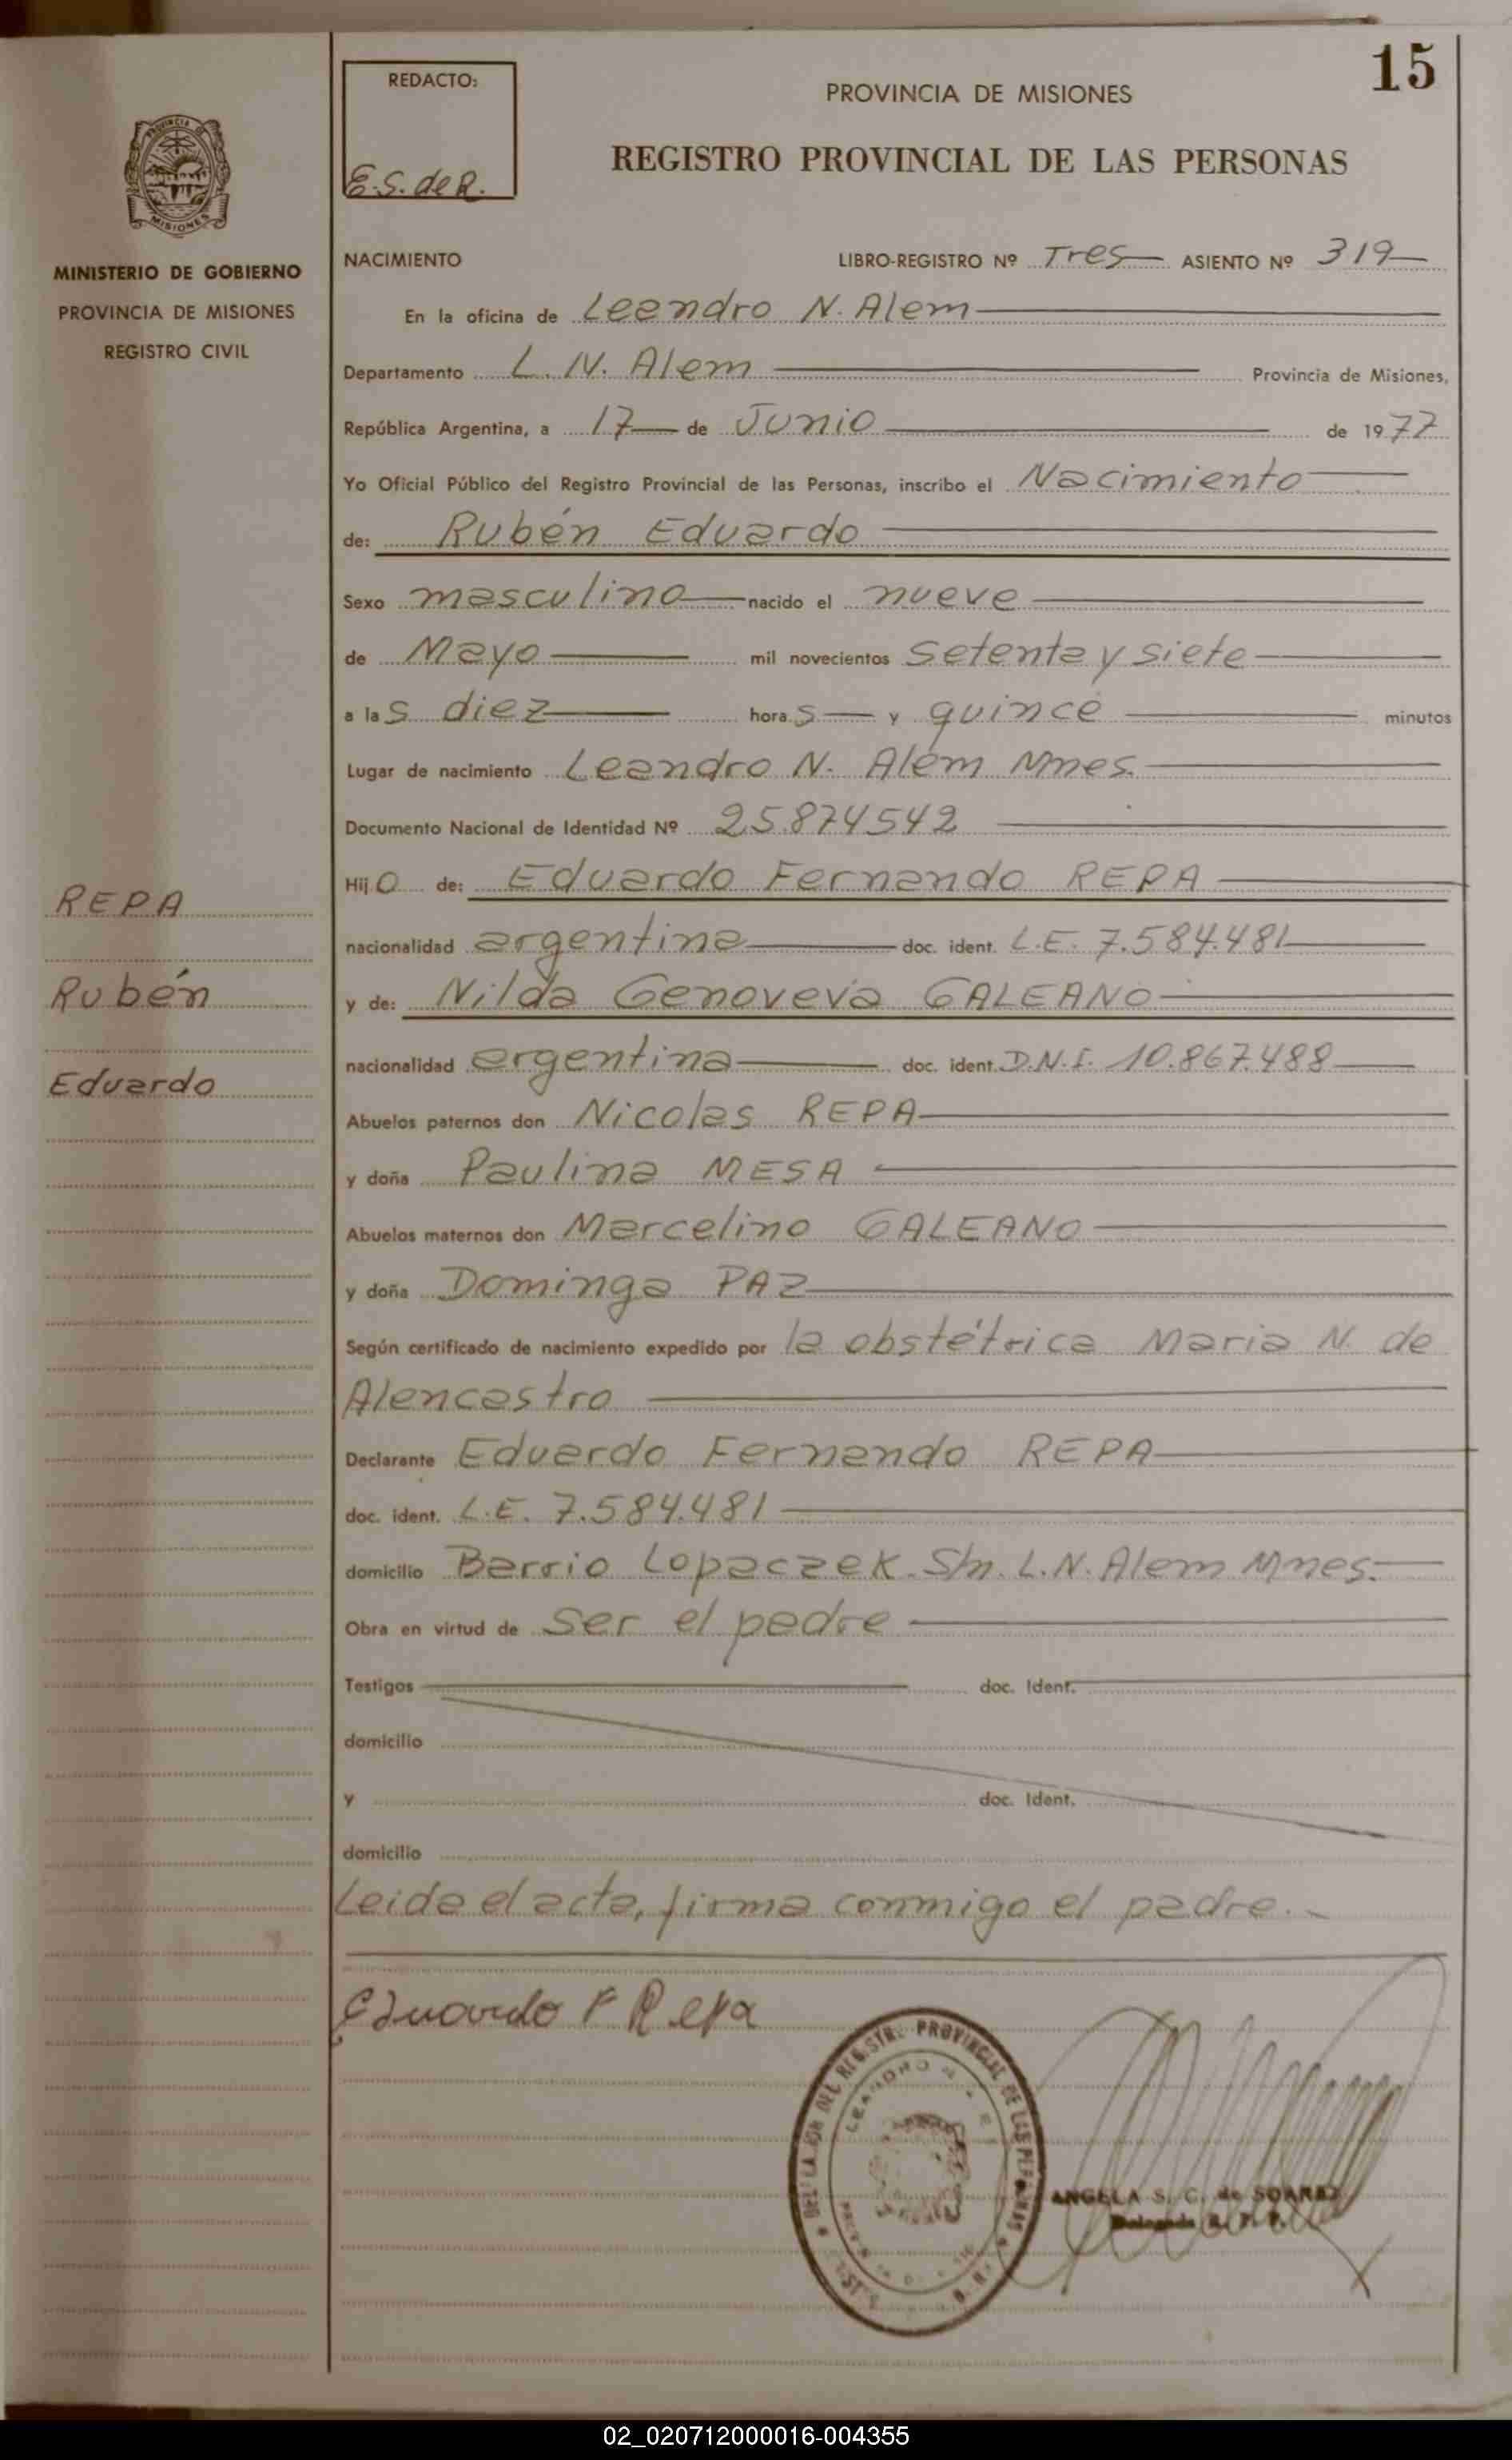 15
REDACTO:
E.S. de R.
PROVINCIA DE MISIONES
REGISTRO PROVINCIAL DE LAS PERSONAS
PROVINCIA DE
MISIONES
MINISTERIO DE GOBIERNO
PROVINCIA DE MISIONES
REGISTRO CIVIL
NACIMIENTO LIBRO-REGISTRO Nº Tres ASIENTO Nº 319
En la oficina de Leandro N. Alem
Departamento L. N. Alem Provincia de Misiones,
República Argentina, a 17 de Junio de 1977
Yo Oficial Público del Registro Provincial de las Personas, inscribo el Nacimiento
de: Rubén Eduardo
Sexo masculino nacido el nueve
de Mayo mil novecientos setenta y siete
a las diez horas y quince minutos
Lugar de nacimiento Leandro N. Alem Mnes.
Documento Nacional de Identidad Nº 25.874542
Hijo de: Eduardo Fernando REPA
nacionalidad argentina doc. ident. L.E. 7.584.481
y de: Nilda Genoveva GALEANO
nacionalidad argentina doc. ident. D.N.I. 10.867.488
Abuelos paternos don Nicolas REPA
y doña Paulina MESA
Abuelos maternos don Marcelino GALEANO
y doña Dominga PAZ
Según certificado de nacimiento expedido por la obstétrica Maria N. de
Alencastro
Declarante Eduardo Fernando REPA
doc. ident. L.E. 7.584.481
domicilio Barrio Lopaczek. S/n. L.N. Alem Mnes.
Obra en virtud de ser el padre
Testigos doc. Ident.
domicilio
y doc. Ident.
domicilio
Leida el acta, firma conmigo el padre.
REPA
Rubén
Eduardo
Eduardo F Repa
DEL REGISTR. PROVINCIAL DE LAS PERSONAS
LEANDRO N.
ANGELA S. C. de
Delegada R. P. P.
02_020712000016-004355